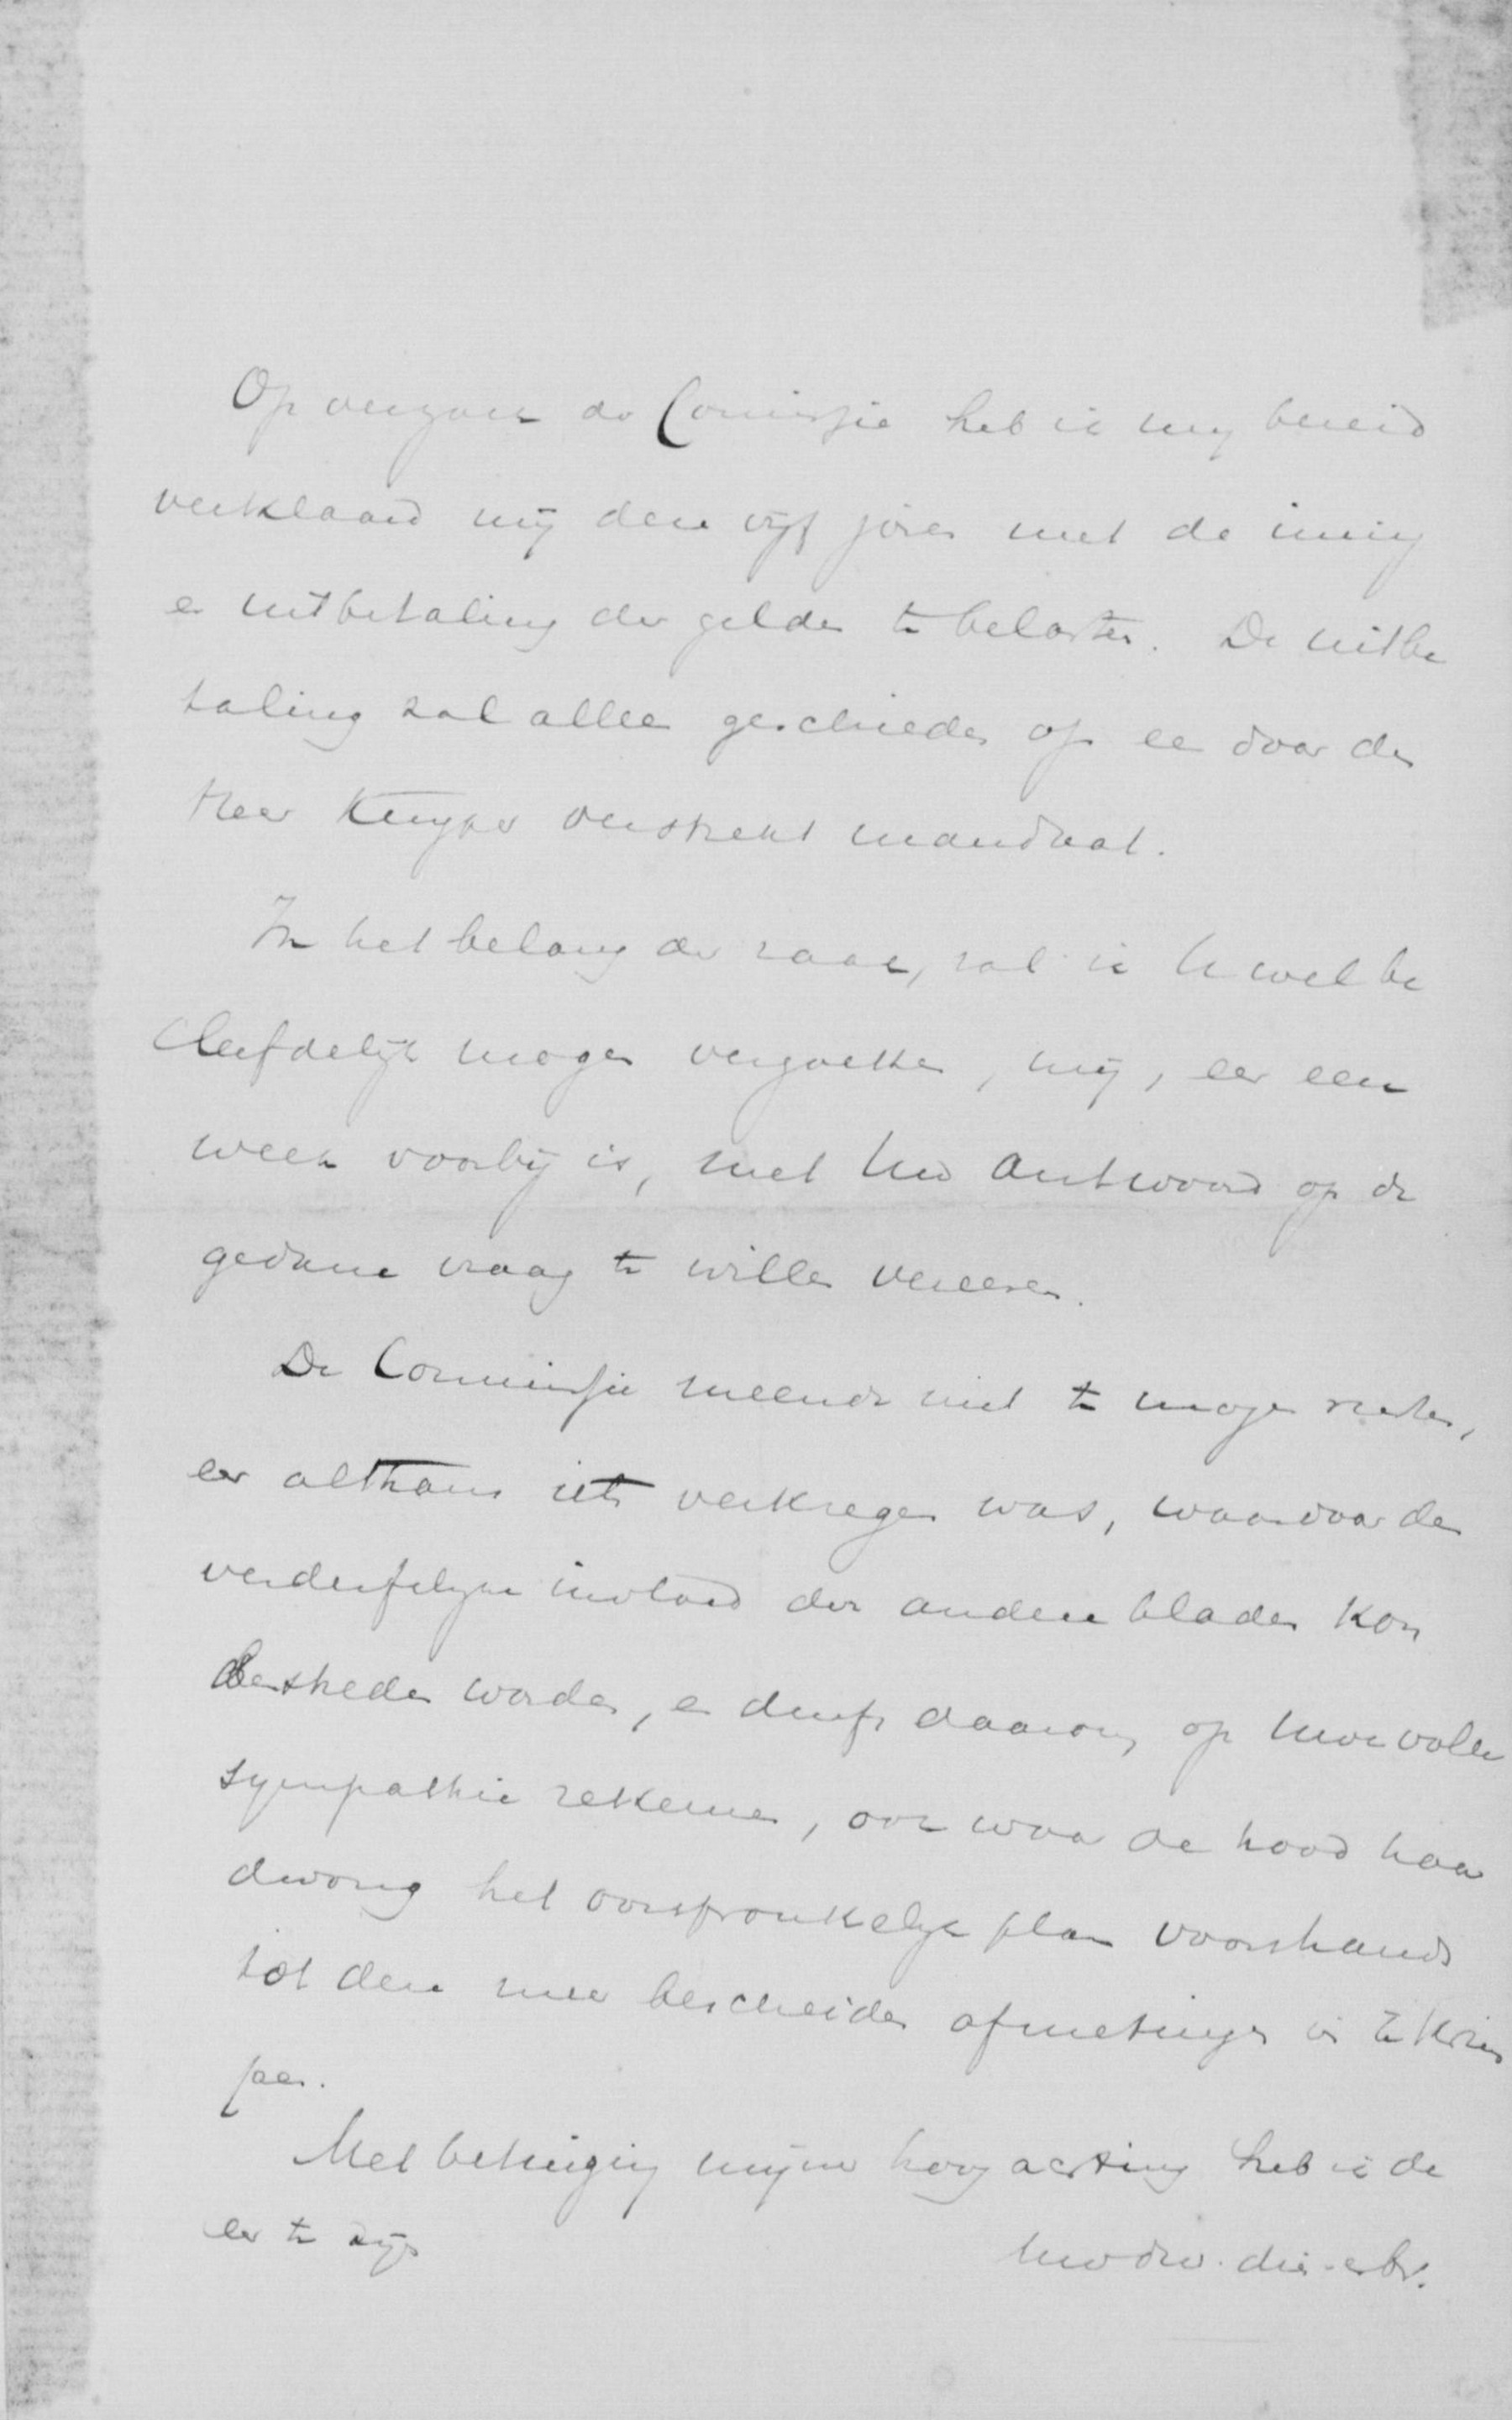 Op verzoek der Commissie heb ik mij bereid
verklaard mij deze vijf jaren met de inning
en uitbetaling der gelden te belasten. De uitbe
taling zal alleen geschieden op een door den
Heer Kuyper verstrekt mandaat.
In het belang der zaak, zal ik U wel be
leefdelijk mogen verzoeken, mij, eer een
week voorbij is, met Uw antwoord op de
gedane vraag te willen vereeren.
De Commissie meende niet te mogen rusten,
eer althans iets verkregen was, waardoor de
verderfelijke invloed der andere bladen kon
bestreden worden, en durft daarom op Uwe volle
sympathie rekenen, ook waar de nood haar
dwong het oorspronkelijk plan voorshands
tot deze meer bescheiden afmetingen in te krim
pen.
Met betuiging mijner hoogachting heb ik de
eer te zijn
Uw dw. dien. en br.